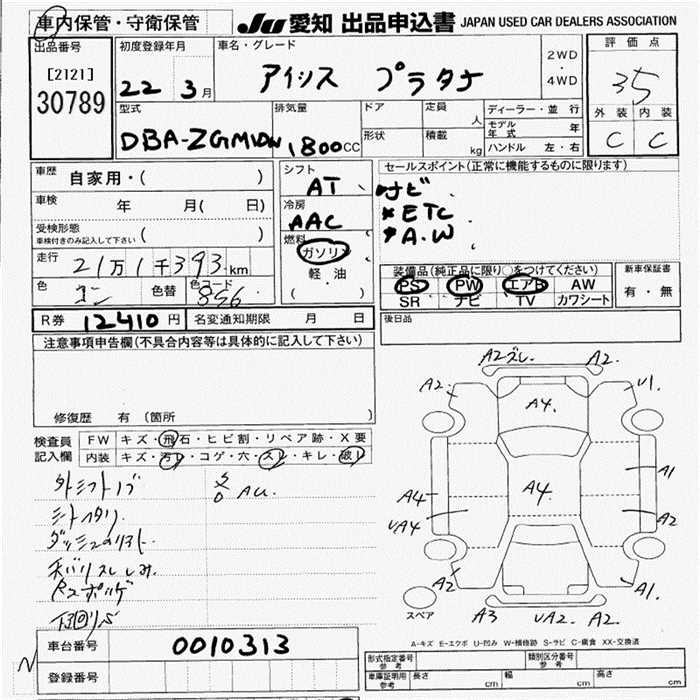 車内保管・守衛保管
JU 愛知 出品申込書 JAPAN USED CAR DEALERS ASSOCIATION
出品番号
[2121]
30789
初度登録年月
22 3月
車名・グレード
アイシス プラタナ
2WD
・
4WD
評価点
3.5
外装 内装
C C
型式
DBA-ZGM10W
排気量
1800CC
ドア
形状
定員 人
積載 kg
ディーラー・並行
モデル年式 年
ハンドル 左・右
車歴 自家用・( )
車検 年 月( 日)
受検形態
車検付きのみ記入して下さい ( )
走行 21万1千393km
色 色替 色コード
コン 8S6
シフト
AT
冷房
AAC
燃料
ガソリン
軽油
( )
セールスポイント(正常に機能するものに限ります)
*ナビ
*ETC
*A.W
装備品(純正品に限り○をつけてください)
PS PW エアB AW
SR ナビ TV カワシート
新車保証書
有・無
R券 12410円 名変通知期限 月 日
後日品
注意事項申告欄(不具合内容等は具体的に記入して下さい)
修復歴 有 (箇所 )
検査員記入欄
FW キズ・飛石・ヒビ割・リペア跡・X要
内装 キズ・汚レ・コゲ・穴・スレ・キレ・破レ
外シフトノブ
シートヘタリ
AU.
A2スレ. A2.
A2. U1.
A4.
A1
A4 A4. A2
UA4
A2 A1.
A3 UA2. A2.
スペア
A-キズ E-エクボ U-凹み W-補修跡 S-サビ C-腐食 XX-交換済
車台番号 0010313
登録番号
型式指定番号参考
類別区分番号参考
車庫証明用参考 長さ cm 幅 cm 高さ cm